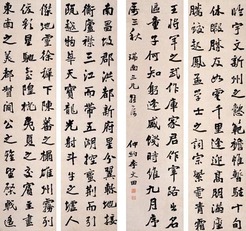 南昌故郡洪都新府星分翼軫地接
衡廬襟三江而帶五湖控蠻荊而引
甌越物華天寶龍光射斗牛之墟人
傑地靈徐孺下陳蕃之榻雄州霧列
俊彩星馳臺隍枕夷夏之交賓主盡
東南之美都督閻公之雅望棨戟遙
臨宇文新州之懿範襜帷暫駐十旬
休暇勝友如雲千里逢迎高朋滿座
騰蛟起鳳孟學士之詞宗紫電青霜
王將軍之武庫家君作宰路出名
區童子何知躬逢勝餞時維九月序
屬三秋
瑞南三兄雅屬
仲約李文田